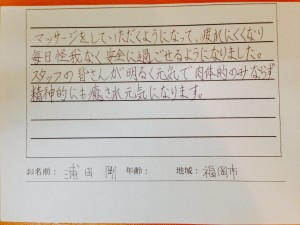 マッサージをしていただくようになって、疲れにくくなり
毎日怪我なく安全に過ごせるようになりました。
スタッフの皆さんが明るく元気で肉体的のみならず
精神的にも癒され元気になります。
お名前： 浦田 剛 年齢： 地域： 福岡市